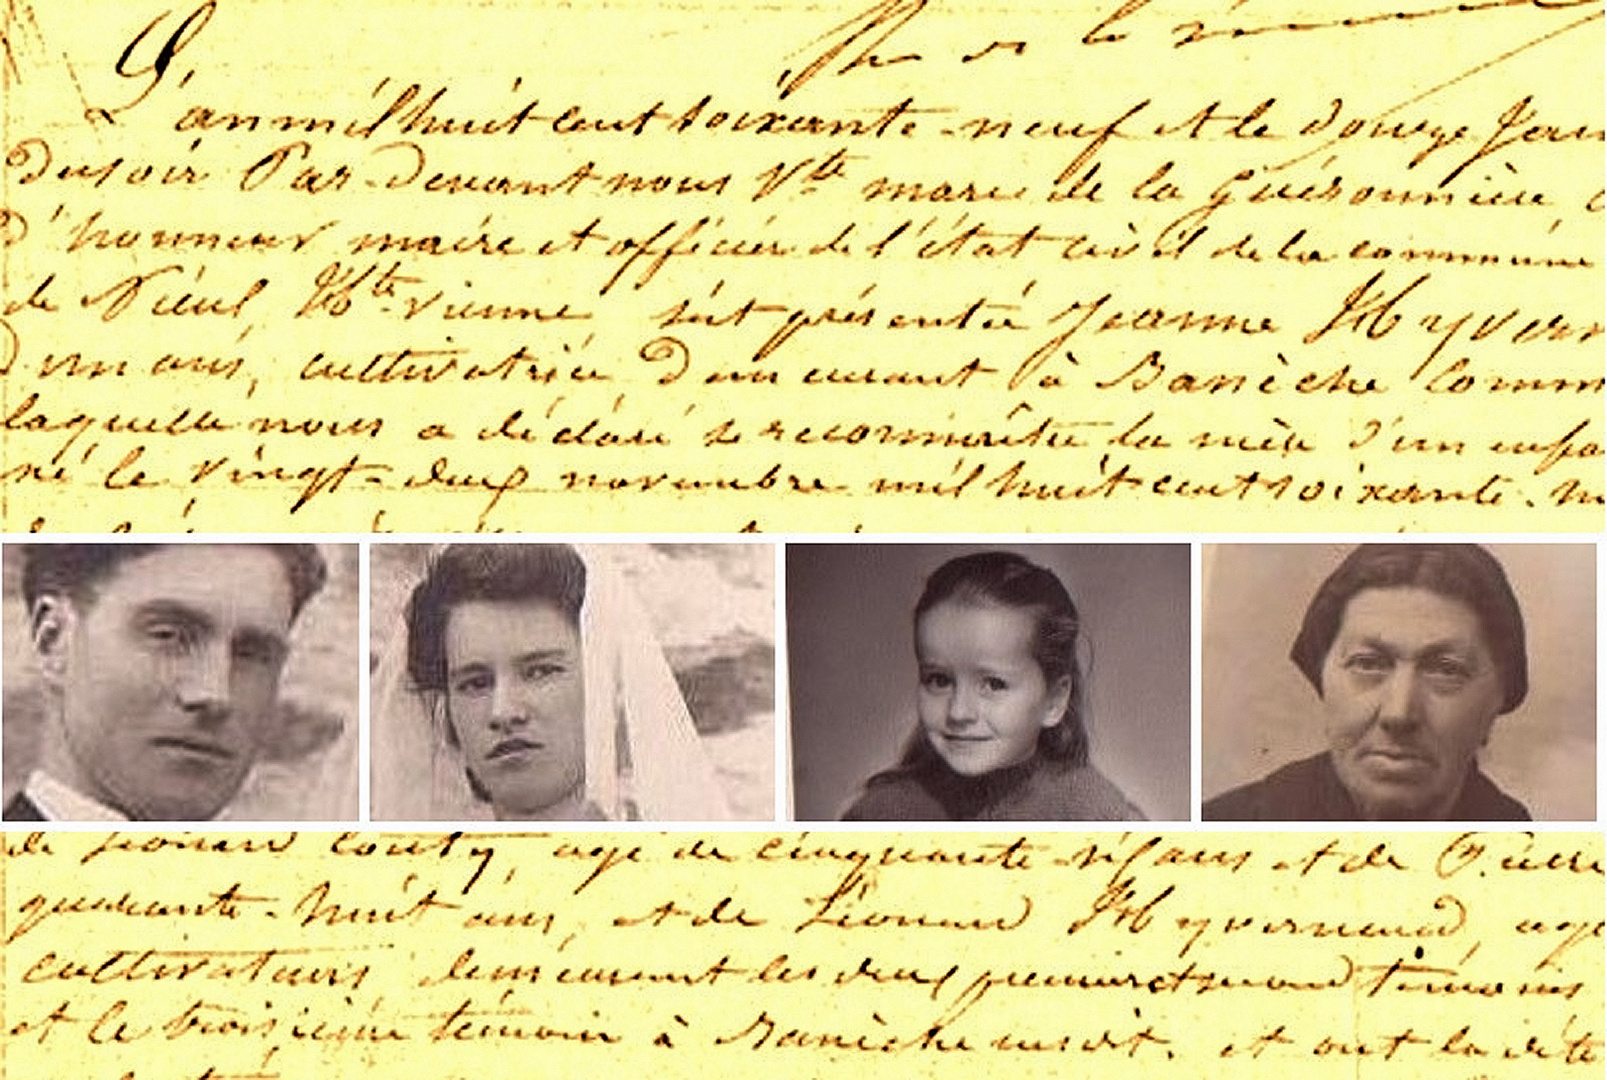 L'an mil huit cent soixante-neuf et le douze Jan
du soir Par-devant nous Vte marie de la Guéronnière,
d'honneur maire et officier de l'état civil de la commune
de Nieul, Hte-vienne s'est présentée Jeanne Hyvern
d'un ans, cultivatrice demeurant à Banèche comm
laquelle nous a déclaré se reconnaître la mère d'un enfa
né le vingt-deux novembre mil huit cent soixante-n
de Léonard Couty, agé de cinquante-six ans et de Pierre
quarante-huit ans, et de Léonard Hyvernaud, agé
cultivateurs demeurant les deux premiers témoins
et le troisième témoin à Banèche susdit. et ont la dite